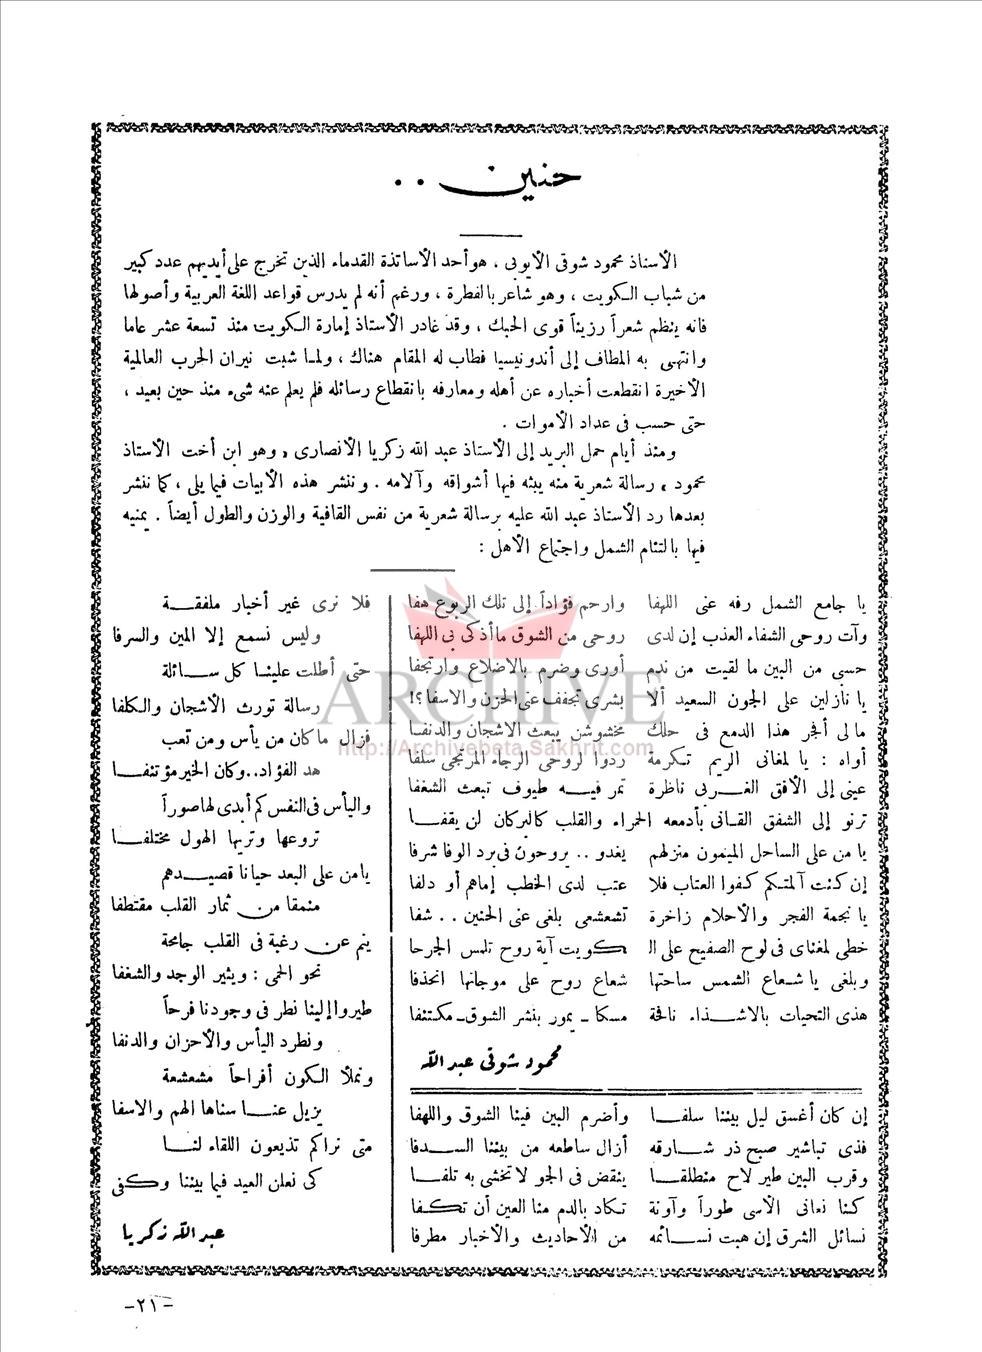 حنين . .
الأستاذ محمود شوقى الأيوبى ، هو أحد الأساتذة القدماء الذين تخرج على أيديهم عدد كبير
من شباب الكويت ، وهو شاعر بالفطرة ، ورغم أنه لم يدرس قواعد اللغة العربية وأصولها
فانه ينظم شعراً رزيناً قوى الحبك ، وقد غادر الأستاذ إمارة الكويت منذ تسعة عشر عاما
وانتهى به المطاف إلى أندونيسيا فطاب له المقام هناك ، ولما شبت نيران الحرب العالمية
الأخيرة انقطعت أخباره عن أهله ومعارفه بانقطاع رسائله فلم يعلم عنه شىء منذ حين بعيد ،
حتى حسب فى عداد الأموات .
ومنذ أيام حمل البريد إلى الأستاذ عبد الله زكريا الأنصارى ، وهو ابن أخت الأستاذ
محمود ، رسالة شعرية منه يبثه فيها أشواقه وآلامه . وننشر هذه الأبيات فيما يلى ، كما ننشر
بعدها رد الأستاذ عبد الله عليه برسالة شعرية من نفس القافية والوزن والطول أيضاً . يمنيه
فيها بالتئام الشمل واجتماع الأهل :
يا جامع الشمل رفه عنى اللهفا وارحم فؤاداً إلى تلك الربوع هفا
وآت روحى الشفاء العذب إن لدى روحى من الشوق ما أذكى بى اللهفا
حسبى من البين ما لقيت من ندم أورى وضرم بالأضلاع وارتجفا
يا نازلين على الجون السعيد ألا بشرى تجفف عى الحزن والأسفا ؟!
ما لى أفجر هذا الدمع فى حلك مخشوشن يبعث الأشجان والدنفا
أواه : يا لمغانى الريم تكرمة ردوا لروحى الرجاء المرتجى سلفا
عينى إلى الأفق الغربى ناظرة تمر فيه طيوف تبعث الشغفا
ترنو إلى الشفق القانى بأدمعه الحمراء والقلب كالبركان لن يقفا
يا من على الساحل الميمون منزلهم يغدو .. يروحون فى برد الوفا شرفا
إن كنت آلمتكم كفوا العتاب فلا عتب لدى الخطب إماهم أو دلفا
يا نجمة الفجر والأحلام زاخرة تشعشعى بلغى عنى الحنين . . شفا
خطى لمغناى فى لوح الصفيح على الكويت آية روح تلمس الجرحا
وبلغى يا شعاع الشمس ساحتها شعاع روح على موجاتها انخذفا
هذى التحيات بالأشذاء نافحة مسكا - يمور بنشر الشوق - مكتنفا
محمود شوقى عبد الله
إن كان أغسق ليل بيننا سلفا وأضرم البين فينا الشوق واللهفا
فذى تباشير صبح ذر شارقه أزال ساطعه من بيننا السدفا
وقرب البين طير لاح منطلقا ينقض فى الجو لا تخشى به تلفا
كنا نعانى الأسى طوراً وآونة تكاد بالدم منا العين أن تكفا
نسائل الشرق إن هبت نسائمه من الأحاديث والأخبار مطرفا
فلا نرى غير أخبار ملفقة
وليس نسمع إلا المين والسرفا
حتى أطلت علينا كل سائلة
رسالة تورث الأشجان والكلفا
فزال ما كان من يأس ومن تعب
هد الفؤاد .. وكان الخير مؤتنفا
واليأس فى النفس كم أبدى لها صوراً
تروعها وتريها الهول مختلفا
يامن على البعد حيانا قصيدهم
منمقا من ثمار القلب مقتطفا
ينم عن رغبة فى القلب جامحة
نحو الحمى : ويثير الوجد والشغفا
طيروا إلينا نطر فى وجودنا فرحاً
ونطرد اليأس والأحزان والدنفا
ونملأ الكون أفراحاً مشعشعة
يزيل عنا سناها الهم والأسفا
متى نراكم تذيعون اللقاء لنا
كى نعلن العيد فيما بيننا وكفى
عبد الله زكريا
ARCHIVE
http://Archivebeta.Sakhrit.com
-٢١-